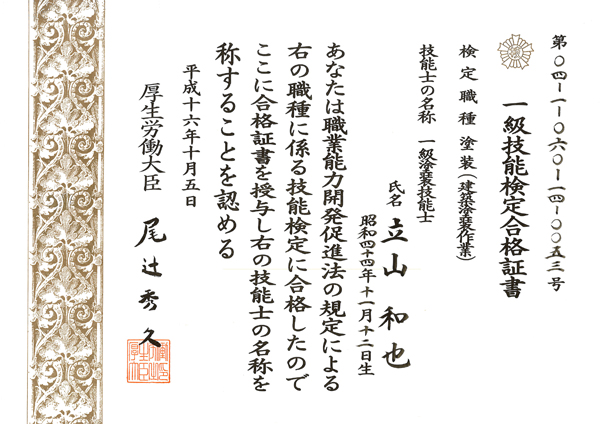 第〇四-一-〇六〇-一四-〇〇五三号
一級技能検定合格証書
検定職種 塗装(建築塗装作業)
技能士の名称 一級塗装技能士
氏名 立山 和也
昭和四十四年十一月十二日生
あなたは職業能力開発促進法の規定による
右の職種に係る技能検定に合格したので
ここに合格証書を授与し右の技能士の名称を
称することを認める
平成十六年十月五日
厚生労働大臣 尾辻秀久